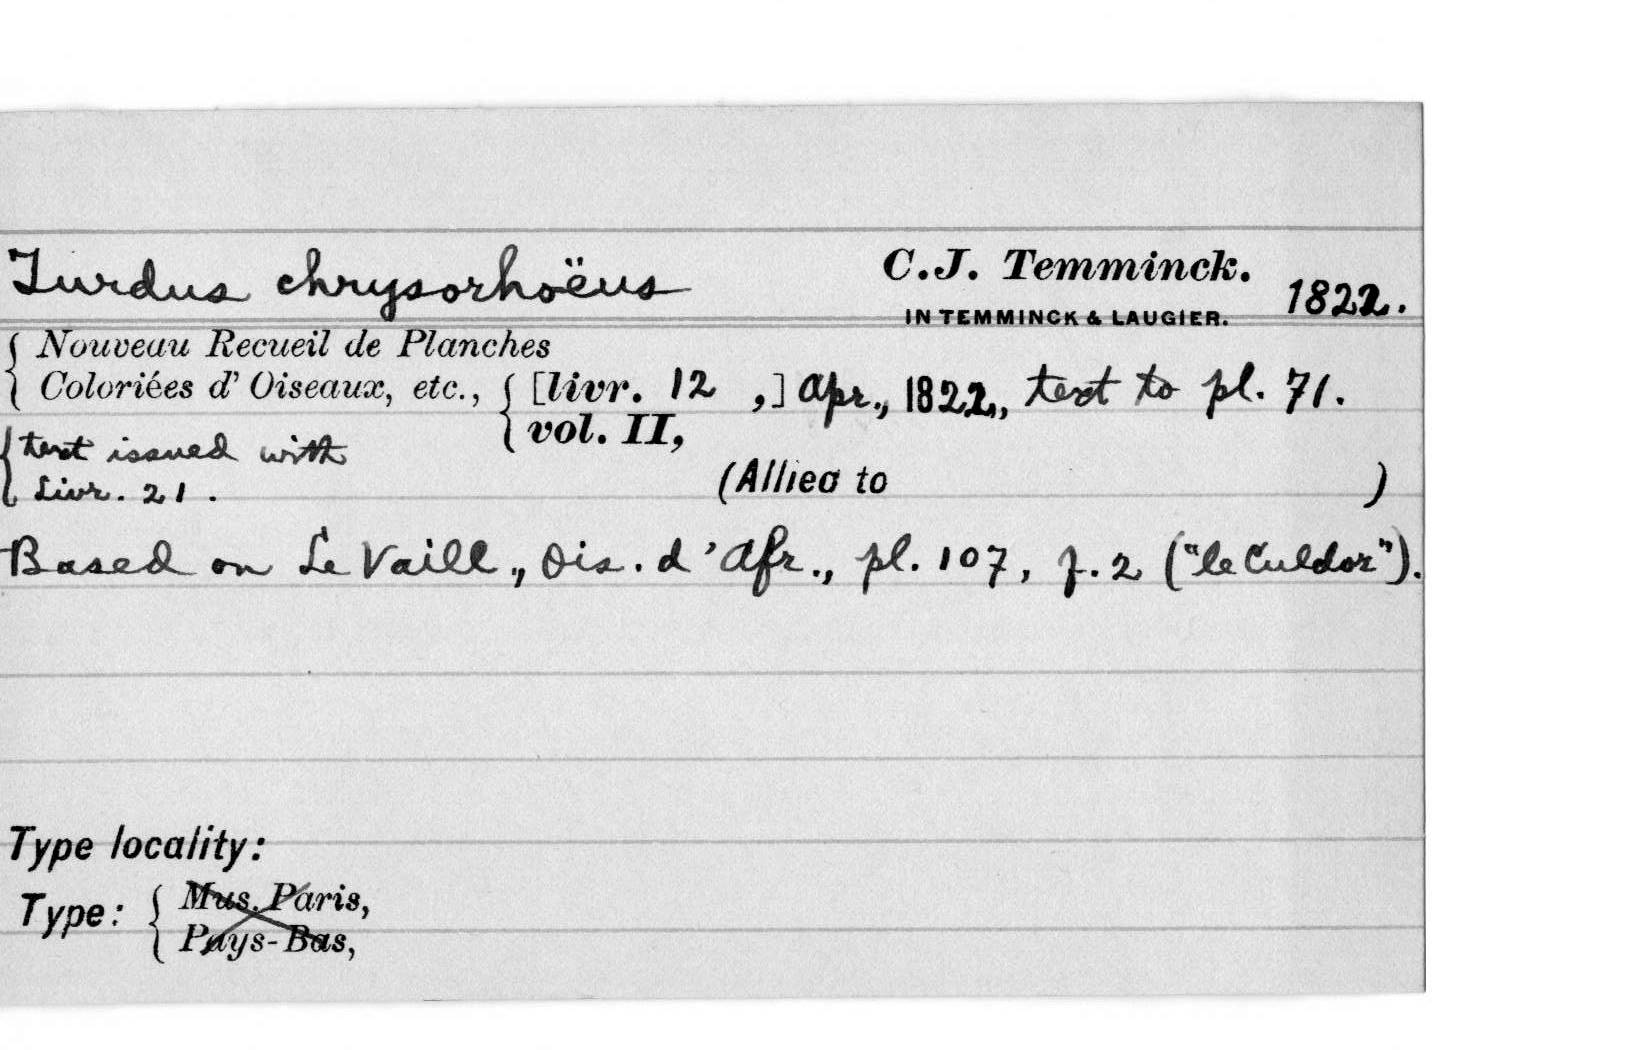 Turdus chrysorhoëus C.J. Temminck. 1822.
IN TEMMINCK & LAUGIER.
Nouveau Recueil de Planches
Coloriées d' Oiseaux, etc., [livr. 12 ,] Apr., 1822, text to pl. 71.
vol. II,
text issued with
Livr. 21.
(Allied to )
Based on Le Vaill., Ois. d'Afr., pl. 107, f. 2 ("le Culdor").
Type locality:
Type: Mus. Paris,
Pays-Bas,